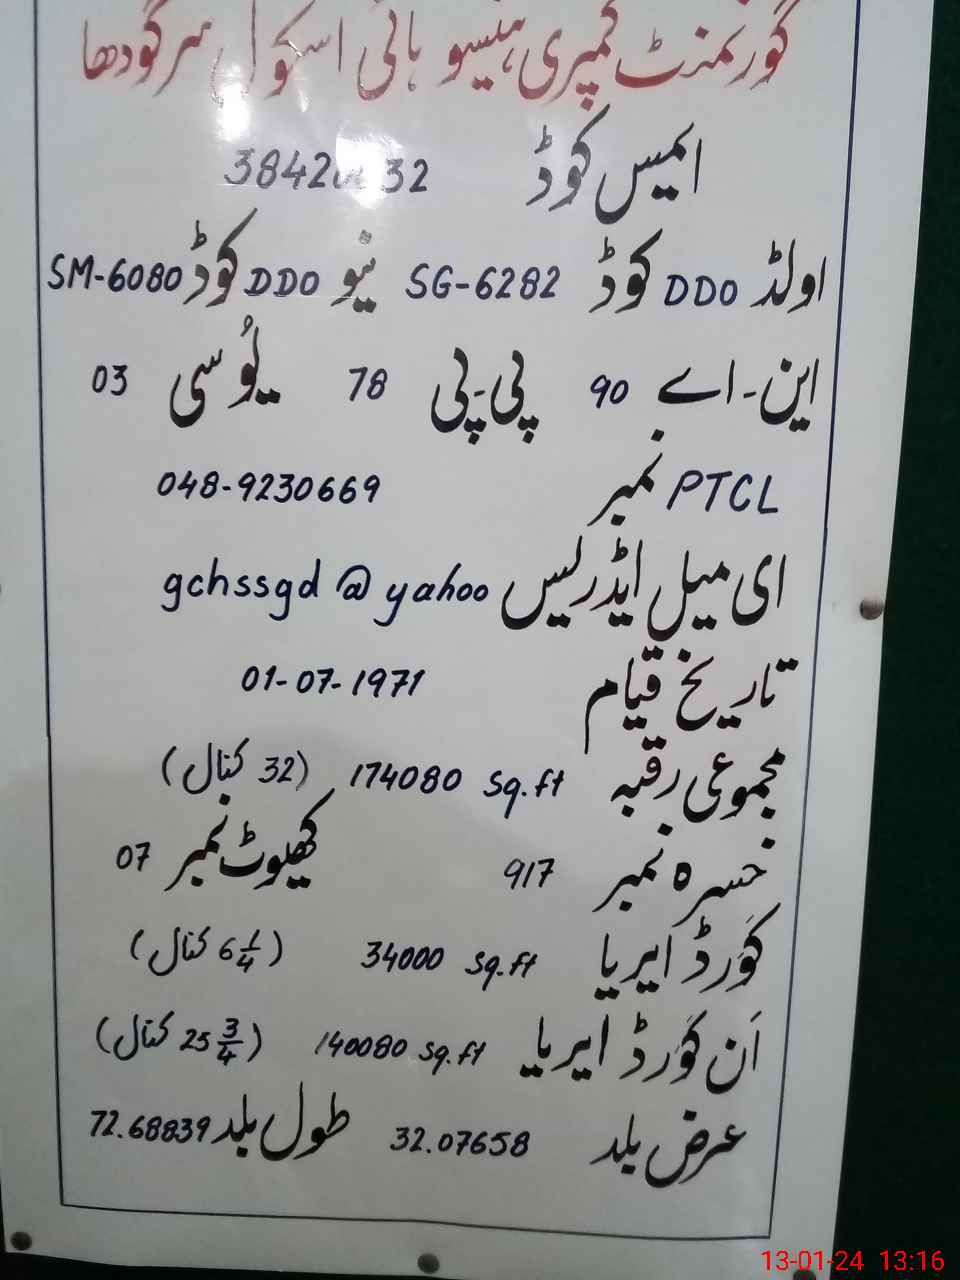 گورنمنٹ کمپری ہینسو ہائی اسکول سرگودھا
ایمس کوڈ 32
اولڈ DDO کوڈ SG-6282 نیو DDO کوڈ SM-6080
این۔اے 90 پی۔پی 78 یُو سی 03
PTCL نمبر 048-9230669
ای میل ایڈریس gchssgd @ yahoo
تاریخ قیام 01-07-1971
مجموعی رقبہ 174080 Sq.ft (32 کنال)
خسرہ نمبر 917 کھیوٹ نمبر 07
کَورڈ ایریا 34000 Sq.ft (6 1/4 کنال)
اَن کَورڈ ایریا 140080 Sq.ft (25 3/4 کنال)
عرض بلد 32.07658 طول بلد 72.68839
13-01-24 13:16